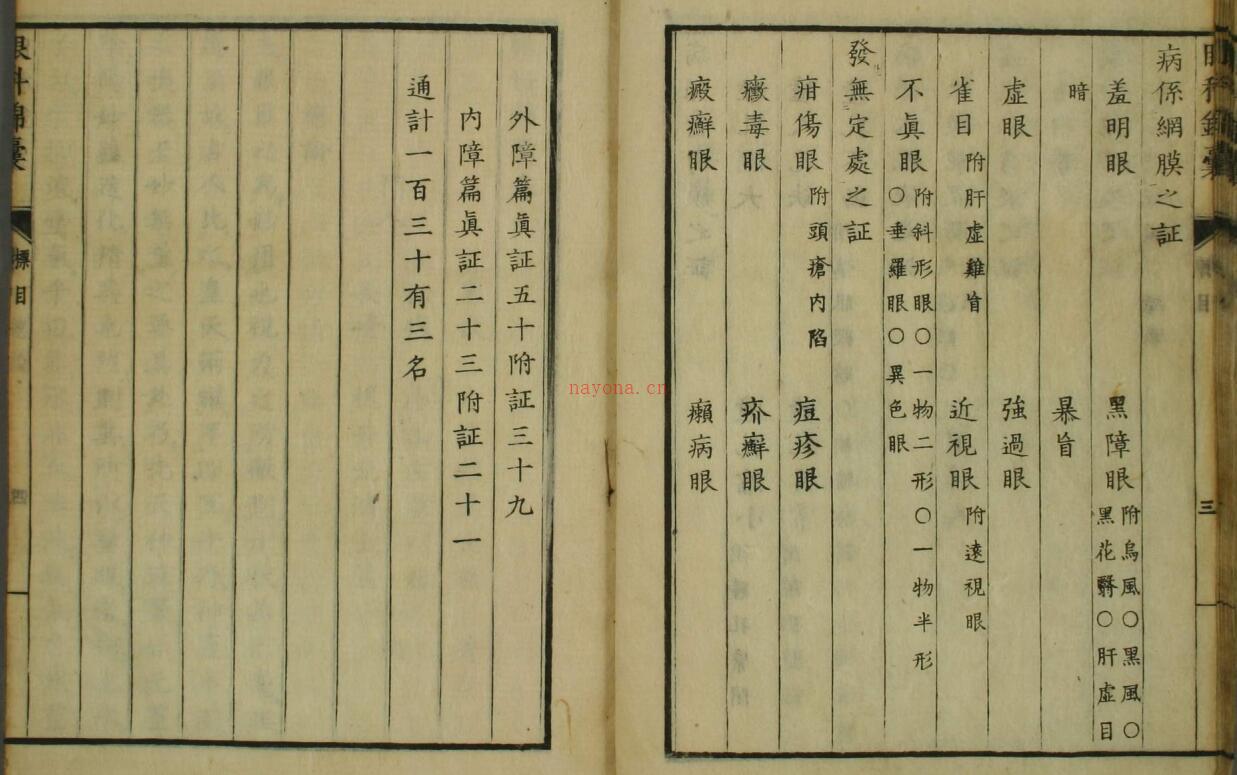 病係網膜之証
羞明眼 黑障眼 附烏風〇黑風〇黑花翳〇肝虛目
暗 暴盲
虛眼 強過眼
雀目 附肝虛雞盲 近視眼 附遠視眼
不眞眼 附斜形眼〇一物二形〇一物半形〇垂羅眼〇異色眼
發無定處之証
疳傷眼 附頭瘡內陷 痘疹眼
黴毒眼 疥癬眼
瘢癬眼 癩病眼
三
外障篇眞証五十附証三十九
內障篇眞証二十三附証二十一
通計一百三十有三名
眼科錦囊
標目
四
nayona.cn